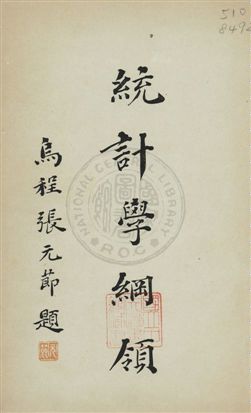 510
統計學綱領
烏程張元節題
NATIONAL CENTRAL LIBRARY
R.O.C.